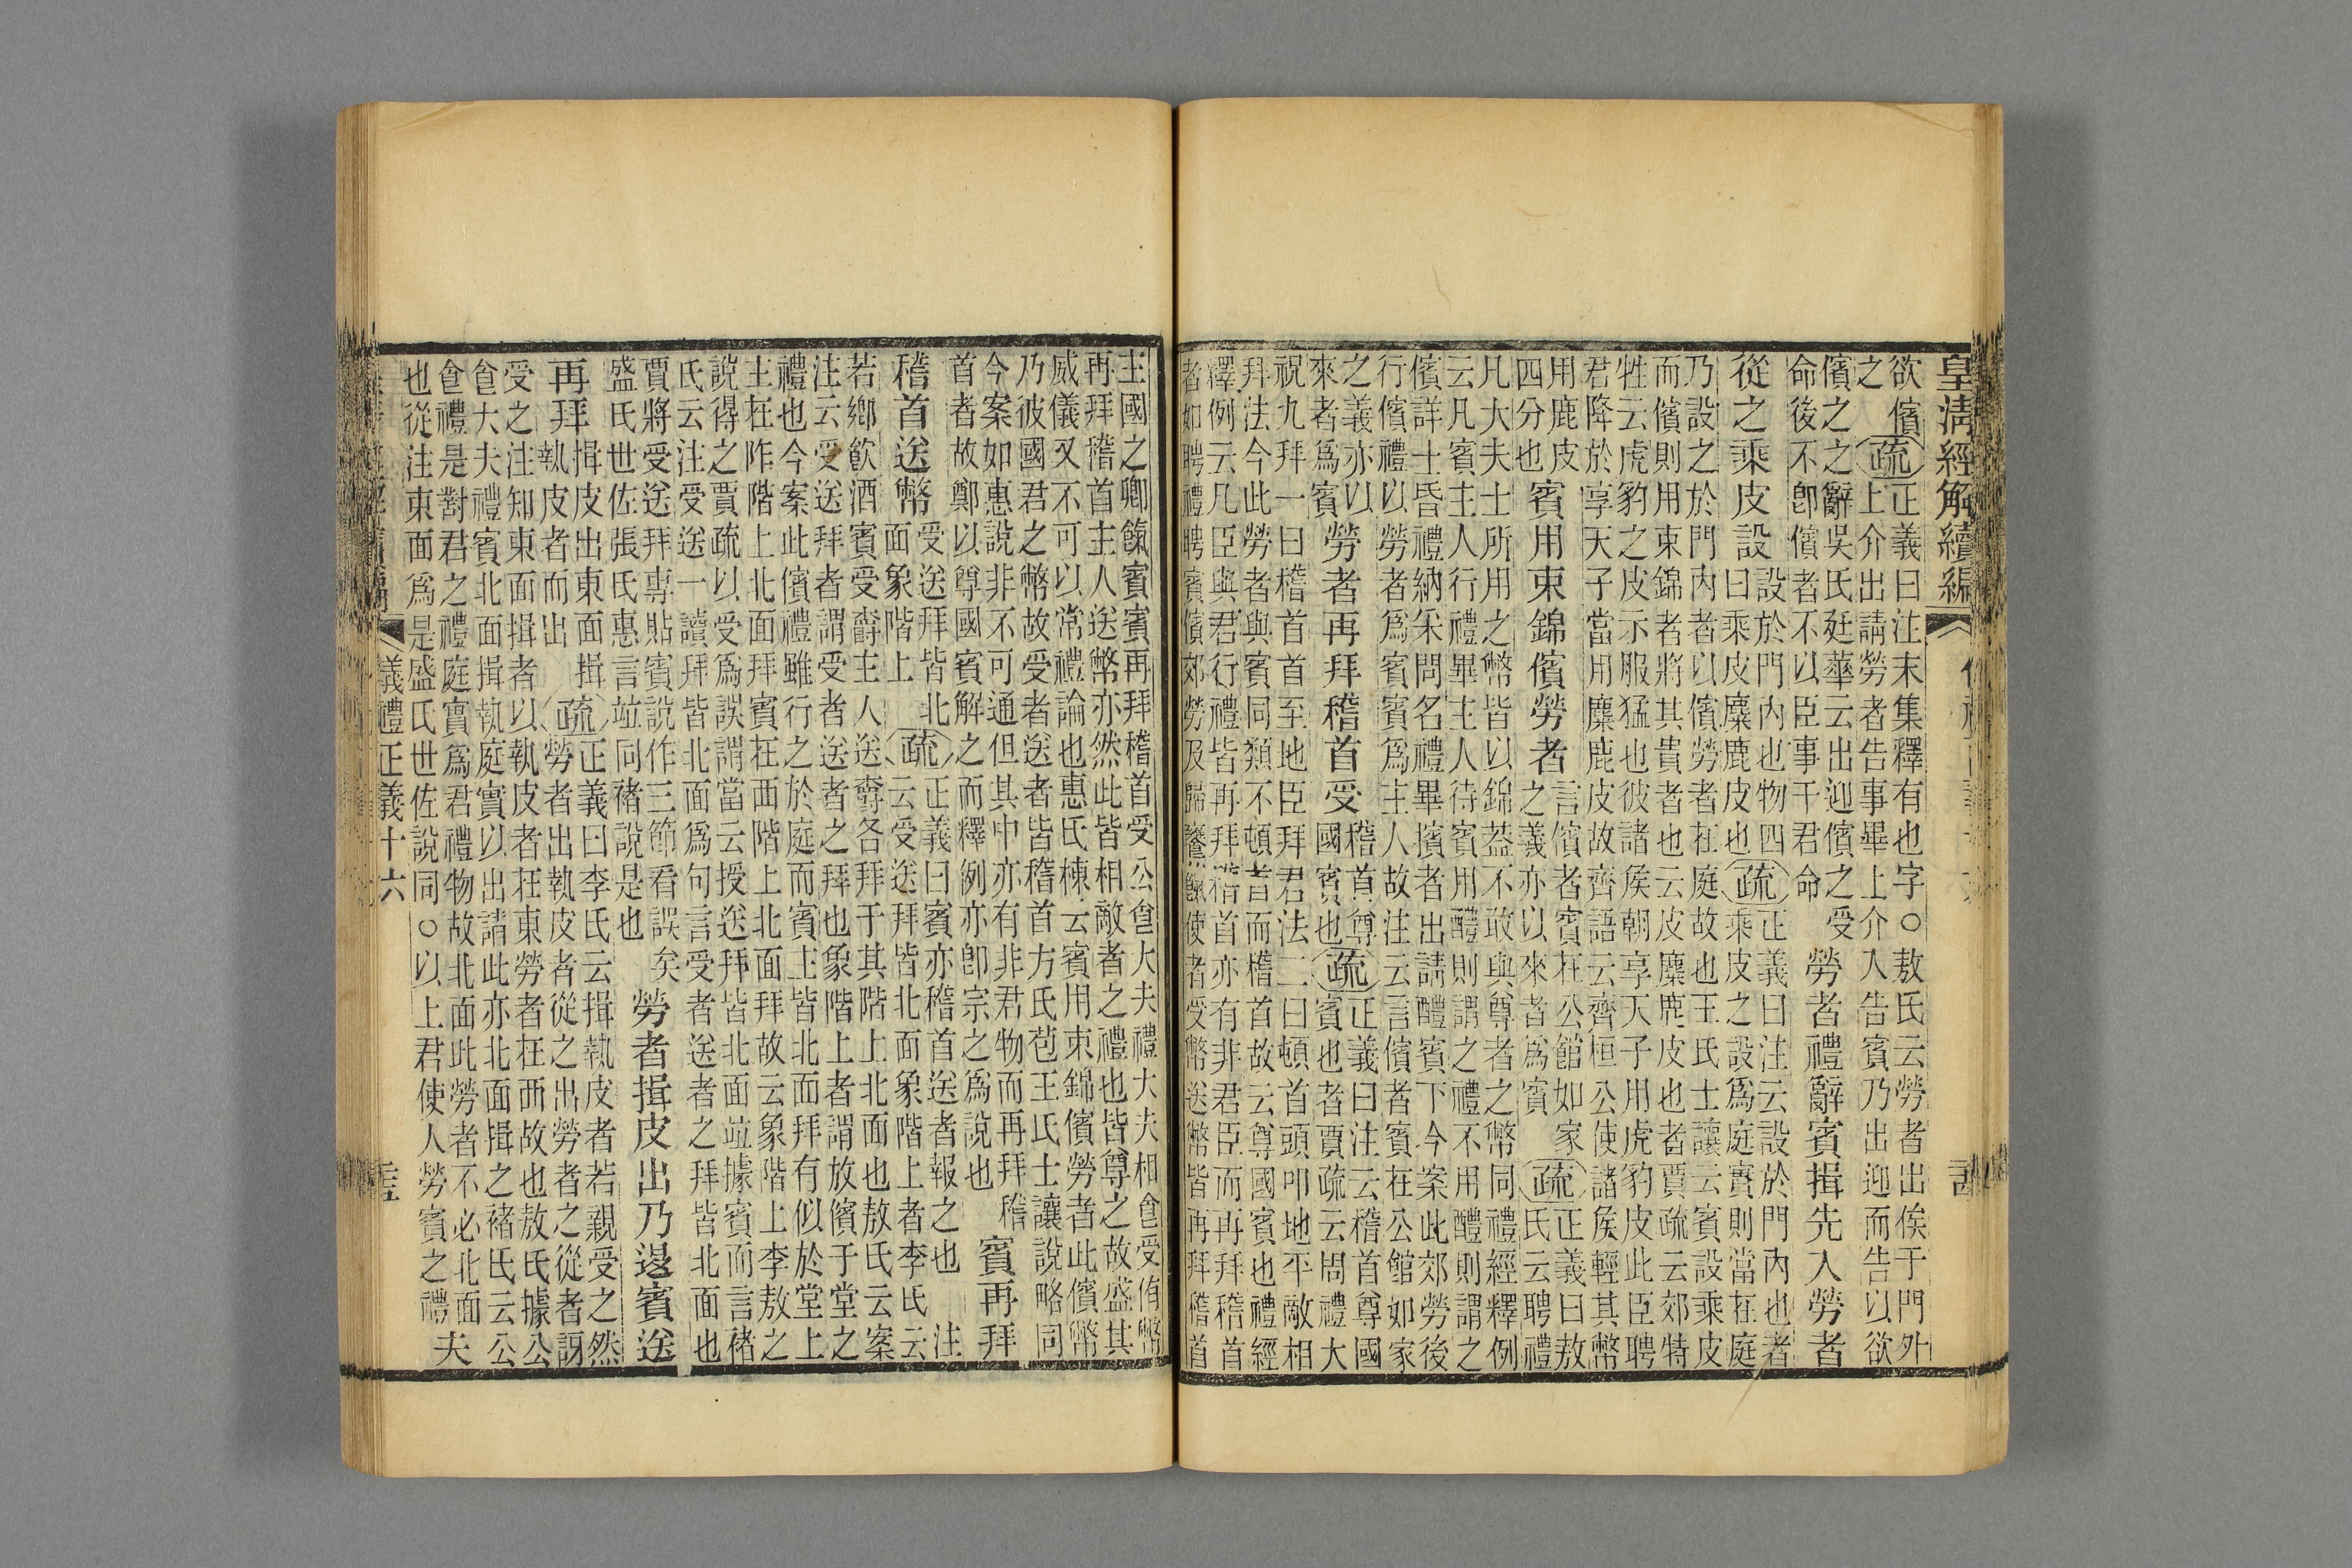 皇清經解續編
欲儐
之
疏
正義曰注末集釋有也字○敖氏云勞者出俟于門外
上介出請勞者告事畢上介入告賓乃出迎而告以欲
儐之之辭吳氏廷華云出迎儐之受
命後不卽儐者不以臣事干君命
勞者禮辭賓揖先入勞者
從之乘皮設
設於門內也物四
曰乘皮麋鹿皮也
疏
正義曰注云設於門內也者
乘皮之設爲庭實則當在庭
乃設之於門內者以儐勞者在庭故也王氏士讓云賓設乘皮
而儐則用束錦者將其貴者也云皮麋鹿皮也者賈疏云郊特
牲云虎豹之皮示服猛也彼諸侯朝享天子用虎豹皮此臣聘
君降於享天子當用麋鹿皮故齊語云齊桓公使諸侯輕其幣
用鹿皮
四分也
賓用束錦儐勞者
言儐者賓在公館如家
之義亦以來者爲賓
疏
正義曰敖
氏云聘禮
凡大夫士所用之幣皆以錦葢不敢與尊者之幣同禮經釋例
云凡賓主人行禮畢主人待賓用醴則謂之禮不用醴則謂之
儐詳士昏禮納采問名禮畢擯者出請醴賓下今案此郊勞後
行儐禮以勞者爲賓賓爲主人故注云言儐者賓在公館如家
之義亦以
來者爲賓
勞者再拜稽首受
稽首尊
國賓也
疏
正義曰注云稽首尊國
賓也者賈疏云周禮大
祝九拜一曰稽首首至地臣拜君法二曰頓首頭叩地平敵相
拜法今此勞者與賓同類不頓首而稽首故云尊國賓也禮經
釋例云凡臣與君行禮皆再拜稽首亦有非君臣而再拜稽首
者如聘禮聘賓儐郊勞及歸饔餼使者受幣送幣皆再拜稽首
主國之卿餼賓賓再拜稽首受公食大夫禮大夫相食受侑幣
再拜稽首主人送幣亦然此皆相敵者之禮也皆尊之故盛其
威儀又不可以常禮論也惠氏棟云賓用束錦儐勞者此儐幣
乃彼國君之幣故受者送者皆稽首方氏苞王氏士讓說略同
今案如惠說非不可通但其中亦有非君物而再拜稽
首者故鄭以尊國賓解之而釋例亦卽宗之爲說也
賓再拜
稽首送幣
受送拜皆北
面象階上
疏
正義曰賓亦稽首送者報之也注
云受送拜皆北面象階上者李氏云
若鄉飮酒賓受爵主人送爵各拜于其階上北面也敖氏云案
注云受送拜者謂受者送者之拜也象階上者謂放儐于堂之
禮也今案此儐禮雖行之於庭而賓主皆北面拜有似於堂上
主在阼階上北面拜賓在西階上北面拜故云象階上李敖之
說得之賈疏以受爲誤謂當云授送拜皆北面竝據賓而言褚
氏云注受送一讀拜皆北面爲句言受者送者之拜皆北面也
賈將受送拜專貼賓說作三節看誤矣
盛氏世佐張氏惠言竝同褚說是也
勞者揖皮出乃退賓送
再拜
揖皮出東面揖
執皮者而出
疏
正義曰李氏云揖執皮者若親受之然
勞者出執皮者從之出勞者之從者訝
受之注知東面揖者以執皮者在東勞者在西故也敖氏據公
食大夫禮賓北面揖執庭實以出請此亦北面揖之褚氏云公
食禮是對君之禮庭實爲君禮物故北面此勞者不必北面
也從注東面爲是盛氏世佐說同○以上君使人勞賓之禮
夫
儀禮正義十六